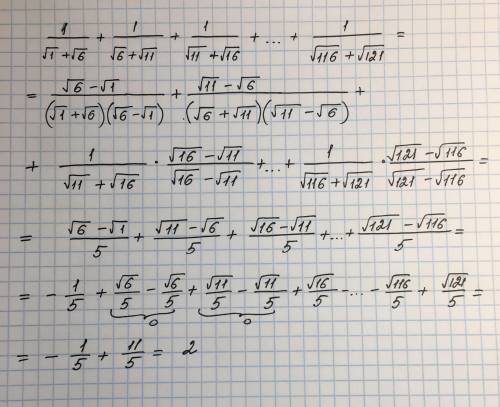 1/(√1+√6) + 1/(√6+√11) + 1/(√11+√16) + ... + 1/(√116+√121) =
= (√6-√1)/((√1+√6)(√6-√1)) + (√11-√6)/((√6+√11)(√11-√6)) +
+ 1/(√11+√16) · (√16-√11)/(√16-√11) + ... + 1/(√116+√121) · (√121-√116)/(√121-√116) =
= (√6-√1)/5 + (√11-√6)/5 + (√16-√11)/5 + ... + (√121-√116)/5 =
= - 1/5 + √6/5 - √6/5 + √11/5 - √11/5 + √16/5 - ... - √116/5 + √121/5 =
0 0
= - 1/5 + 11/5 = 2